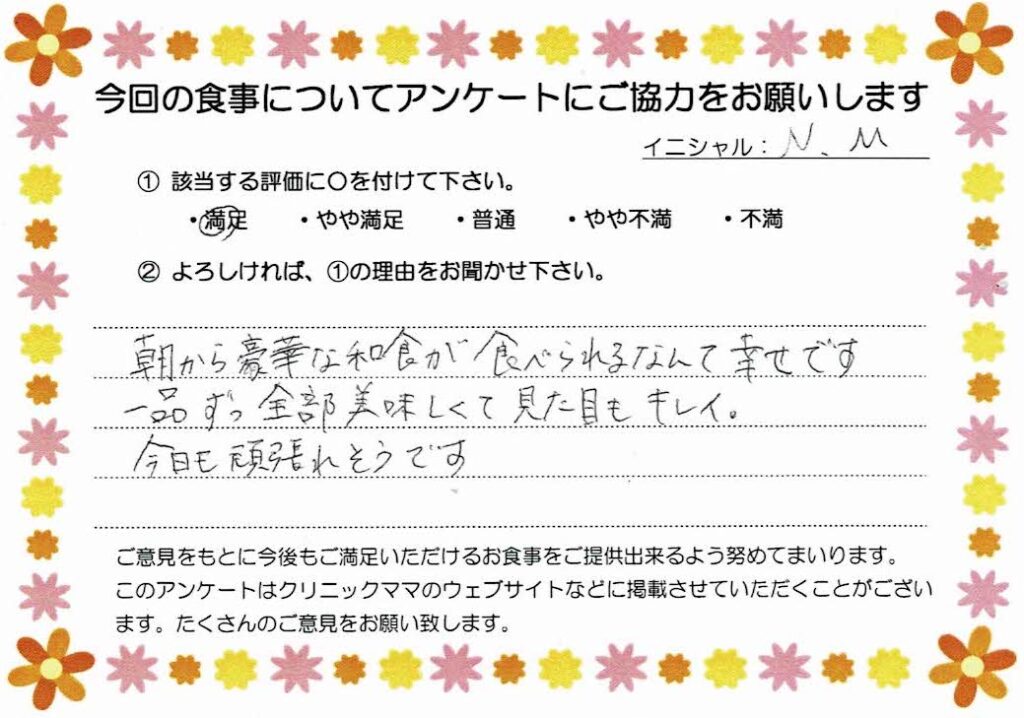 今回の食事についてアンケートにご協力をお願いします
イニシャル：N、M
① 該当する評価に○を付けて下さい。
・満足 ・やや満足 ・普通 ・やや不満 ・不満
② よろしければ、①の理由をお聞かせ下さい。
朝から豪華な和食が食べられるなんて幸せです
一品ずつ全部美味しくて見た目もキレイ。
今日も頑張れそうです
ご意見をもとに今後もご満足いただけるお食事をご提供出来るよう努めてまいります。
このアンケートはクリニックママのウェブサイトなどに掲載させていただくことがござい
ます。たくさんのご意見をお願い致します。